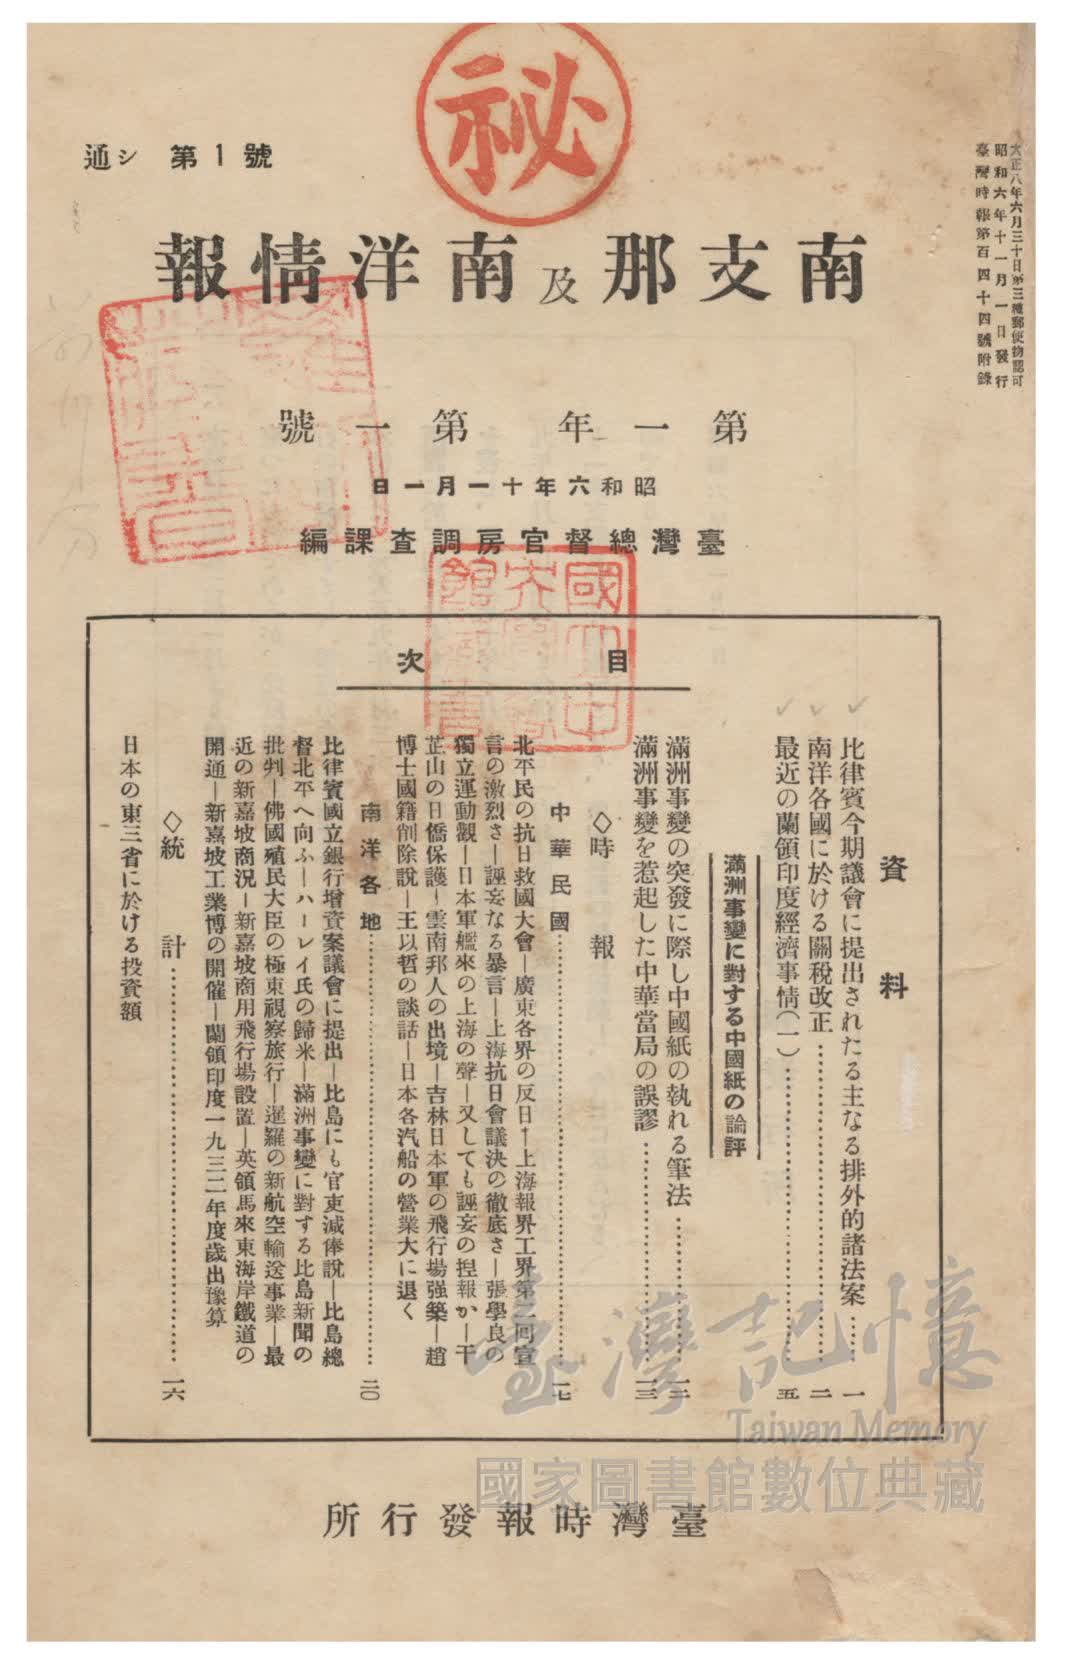 祕
通シ 第1號
大正八年六月三十日第三種郵便物認可
昭和六年十一月一日發行
臺灣時報第百四十四號附錄
南支那及南洋情報
第一年 第一號
昭和六年十一月一日
臺灣總督官房調査課編
目次
資料
比律賓今期議會に提出されたる主なる排外的諸法案……一
南洋各國に於ける關稅改正……二
最近の蘭領印度經濟事情(一)……五
滿洲事變に對する中國紙の論評
滿洲事變の突發に際し中國紙の執れる筆法……一二
滿洲事變を惹起した中華當局の誤謬……一三
◇時報
中華民國……一七
北平民の抗日救國大會―廣東各界の反日―上海報界工界第二回宣
言の激烈さ―誣妄なる暴言―上海抗日會議決の徹底さ―張學良の
獨立運動觀―日本軍艦來の上海の聲―又しても誣妄の捏報か―干
芷山の日僑保護―雲南邦人の出境―吉林日本軍の飛行場强築―趙
博士國籍削除說―王以哲の談話―日本各汽船の營業大に退く
南洋各地……二〇
比律賓國立銀行增資案議會に提出―比島にも官吏減俸說―比島總
督北平へ向ふ―ハーレイ氏の歸米―滿洲事變に對する比島新聞の
批判―佛國殖民大臣の極東視察旅行―暹羅の新航空輸送事業―最
近の新嘉坡商況―新嘉坡商用飛行場設置―英領馬來東海岸鐵道の
開通―新嘉坡工業博の開催―蘭領印度一九三二年度歲出豫算
◇統計……一六
日本の東三省に於ける投資額
臺灣時報發行所
國立中央圖書館藏書
臺灣記憶
Taiwan Memory
國家圖書館數位典藏